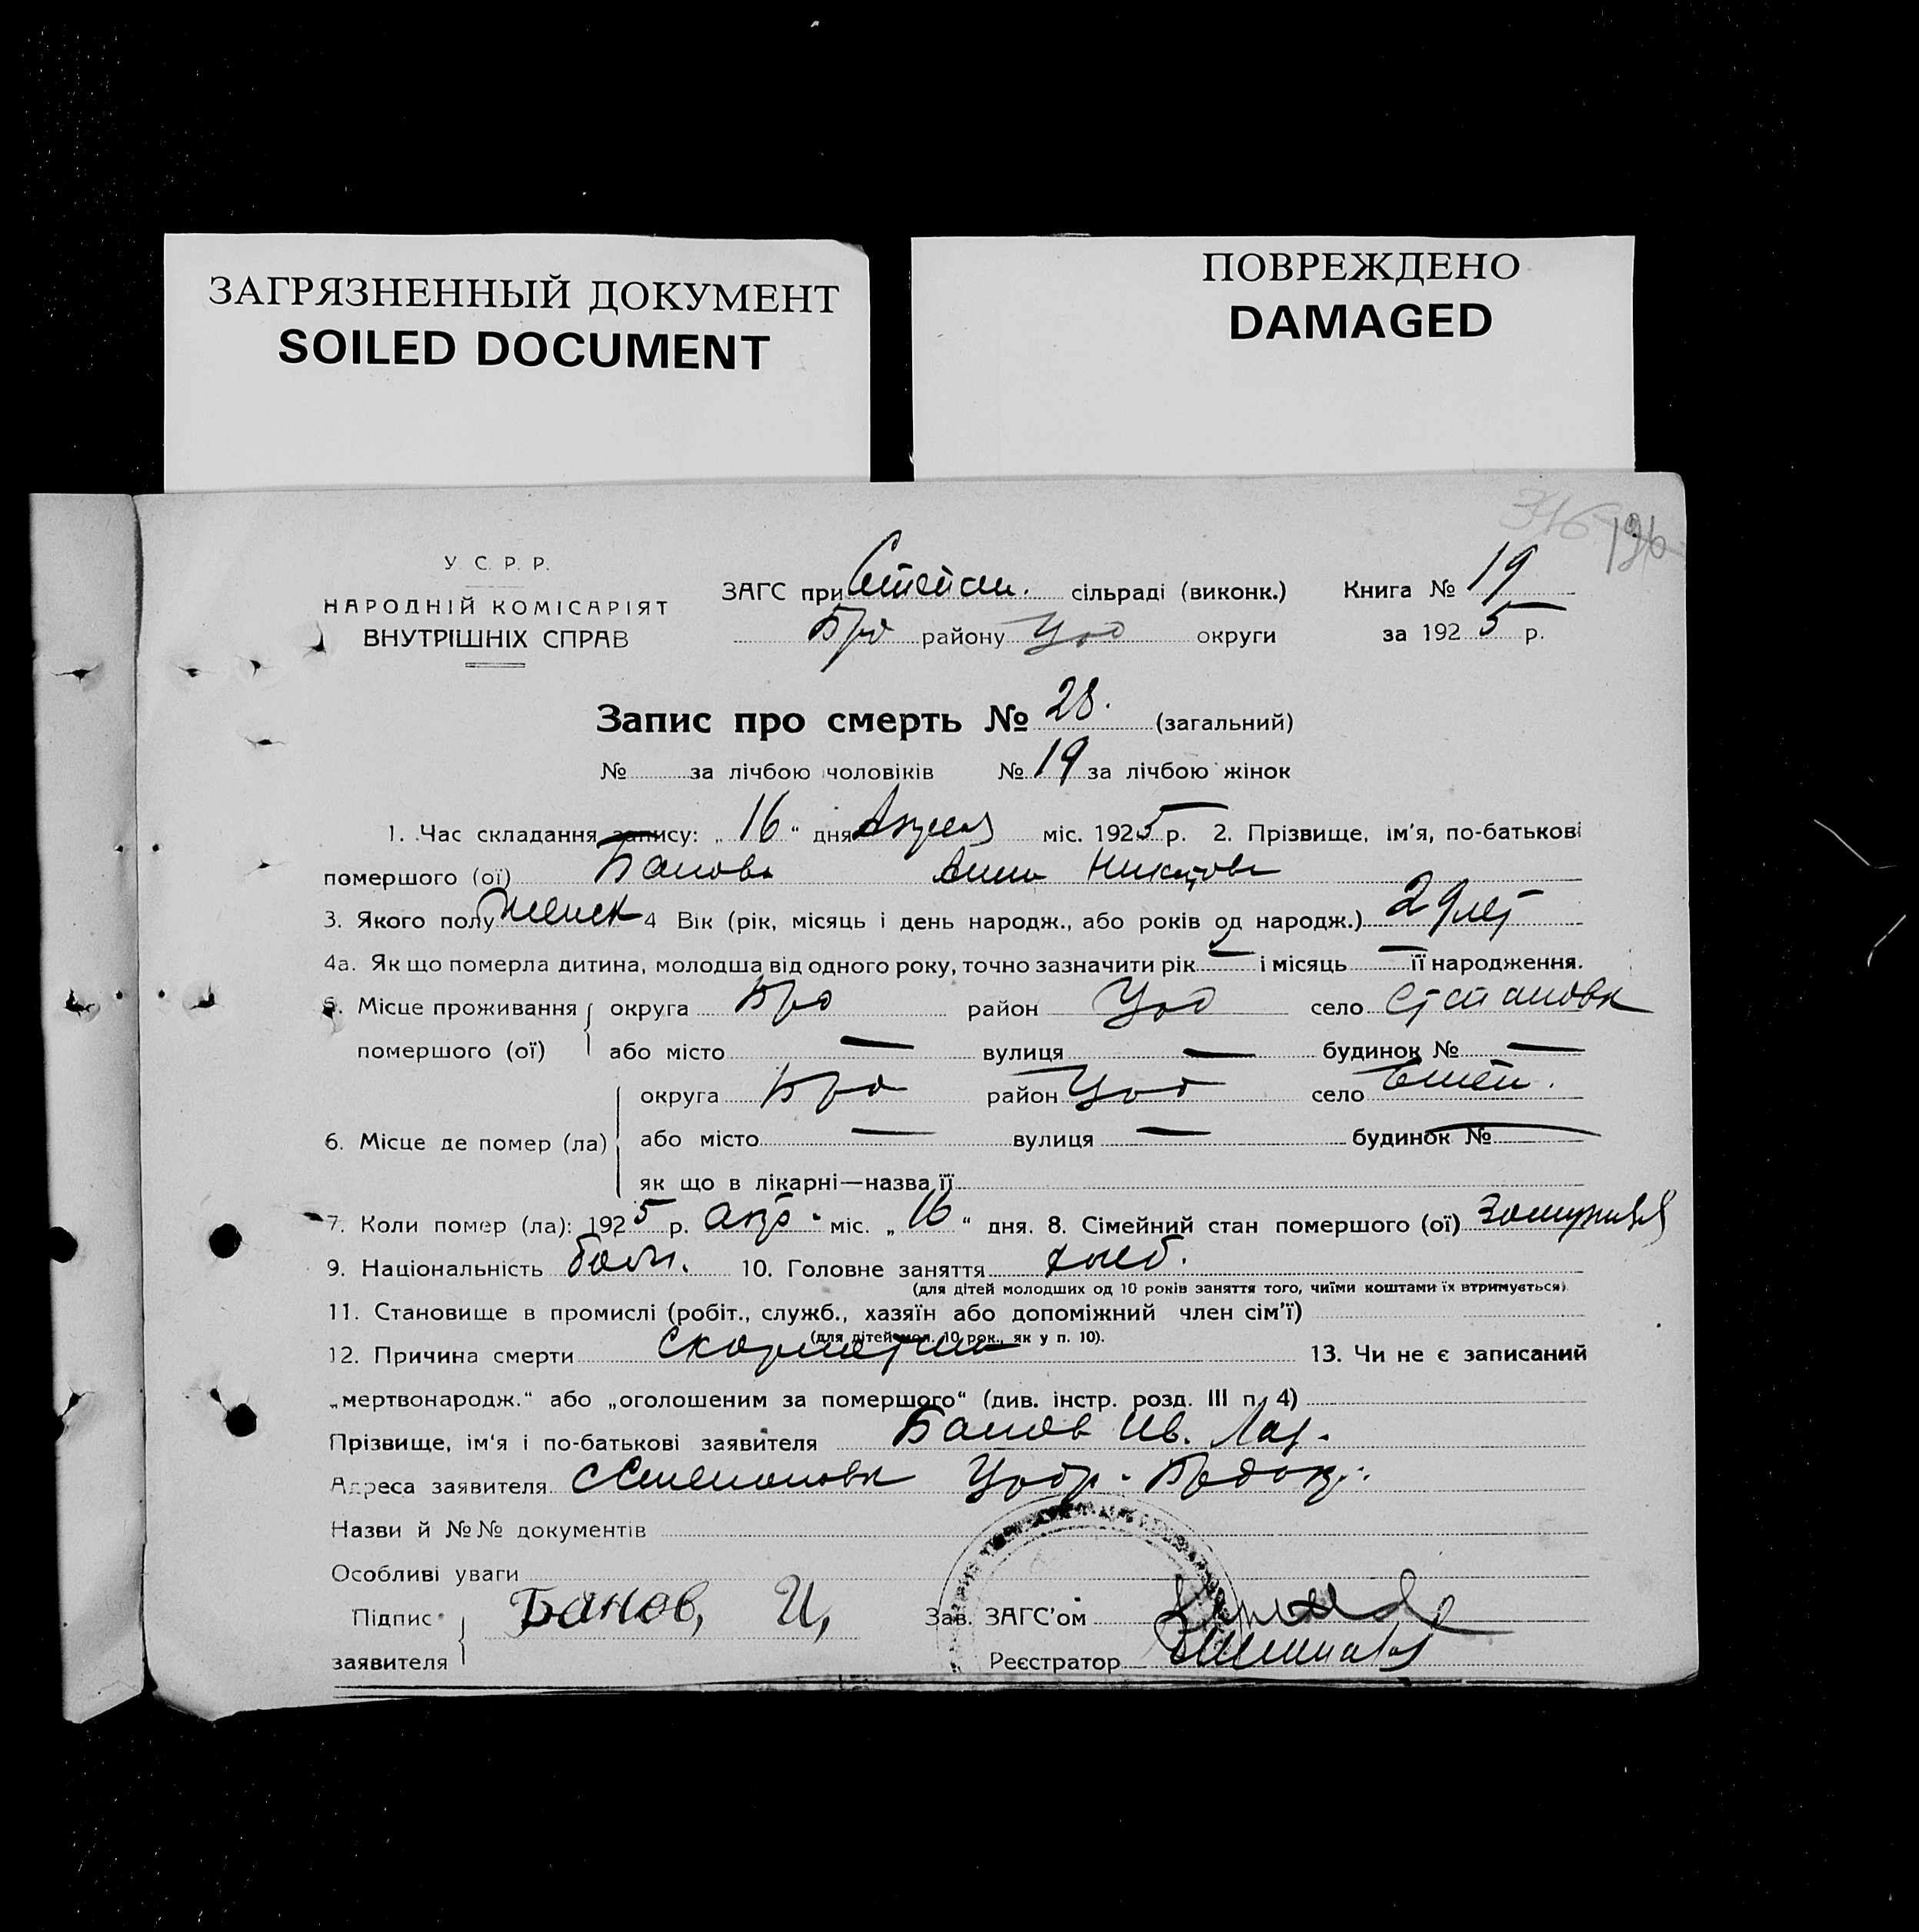 ЗАГРЯЗНЕННЫЙ ДОКУМЕНТ
SOILED DOCUMENT
ПОВРЕЖДЕНО
DAMAGED
346 196
У. С. Р. Р.
НАРОДНІЙ КОМІСАРІЯТ
ВНУТРІШНІХ СПРАВ
ЗАГС при сільраді (виконк.) Книга № 19
району округи за 1925 р.
Запис про смерть № 28. (загальний)
№ за лічбою чоловіків № 19 за лічбою жінок
1. Час складання запису: „16“ дня Апреля міс. 1925 р. 2. Прізвище, ім'я, по-батькові
помершого (ої) Банова Анна
3. Якого полу женск 4 Вік (рік, місяць і день народж., або років од народж.) 29 лет
4а. Як що померла дитина, молодша від одного року, точно зазначити рік — і місяць — її народження.
5. Місце проживання округа район село Степановк
помершого (ої) або місто — вулиця — будинок № —
округа район село
6. Місце де помер (ла) або місто — вулиця — будинок № —
як що в лікарні—назва її
7. Коли помер (ла): 1925 р. апр. міс. „16“ дня. 8. Сімейний стан помершого (ої)
9. Національність болг. 10. Головне заняття хлеб.
(для дітей молодших од 10 років заняття того, чиїми коштами їх втримується)
11. Становище в промислі (робіт., служб., хазяїн або допоміжний член сім'ї)
(для дітей мол. 10 рок., як у п. 10).
12. Причина смерти 13. Чи не є записаний
„мертвонародж.“ або „оголошеним за помершого“ (див. інстр. розд. III п. 4)
Прізвище, ім'я і по-батькові заявителя Банов Ив. Лаз.
Адреса заявителя с Степановк
Назви й №№ документів
Особливі уваги
Підпис заявителя Банов, И, Зав. ЗАГС'ом
Реєстратор